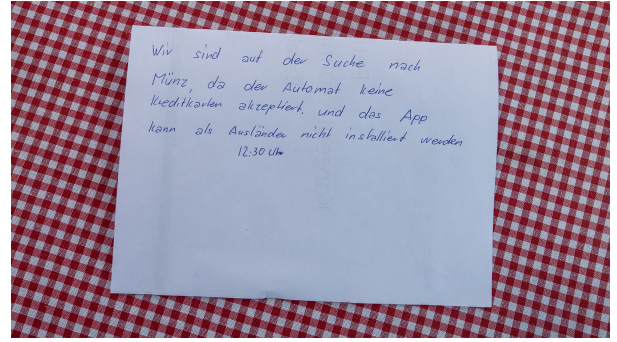 Wir sind auf der Suche nach
Münz, da der Automat keine
Kreditkarten akzeptiert. und das App
kann als Ausländer nicht installiert werden
12:30 Uhr